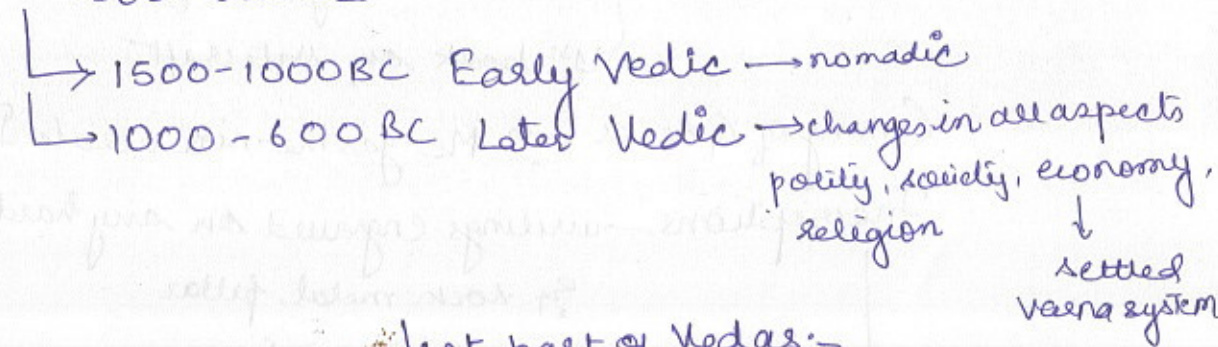 → 1500-1000BC Early Vedic → nomadic
→ 1000-600 BC Later Vedic → changes in all aspects
polity, society, economy,
religion ↓
settled
varna system
last part of Vedas:-